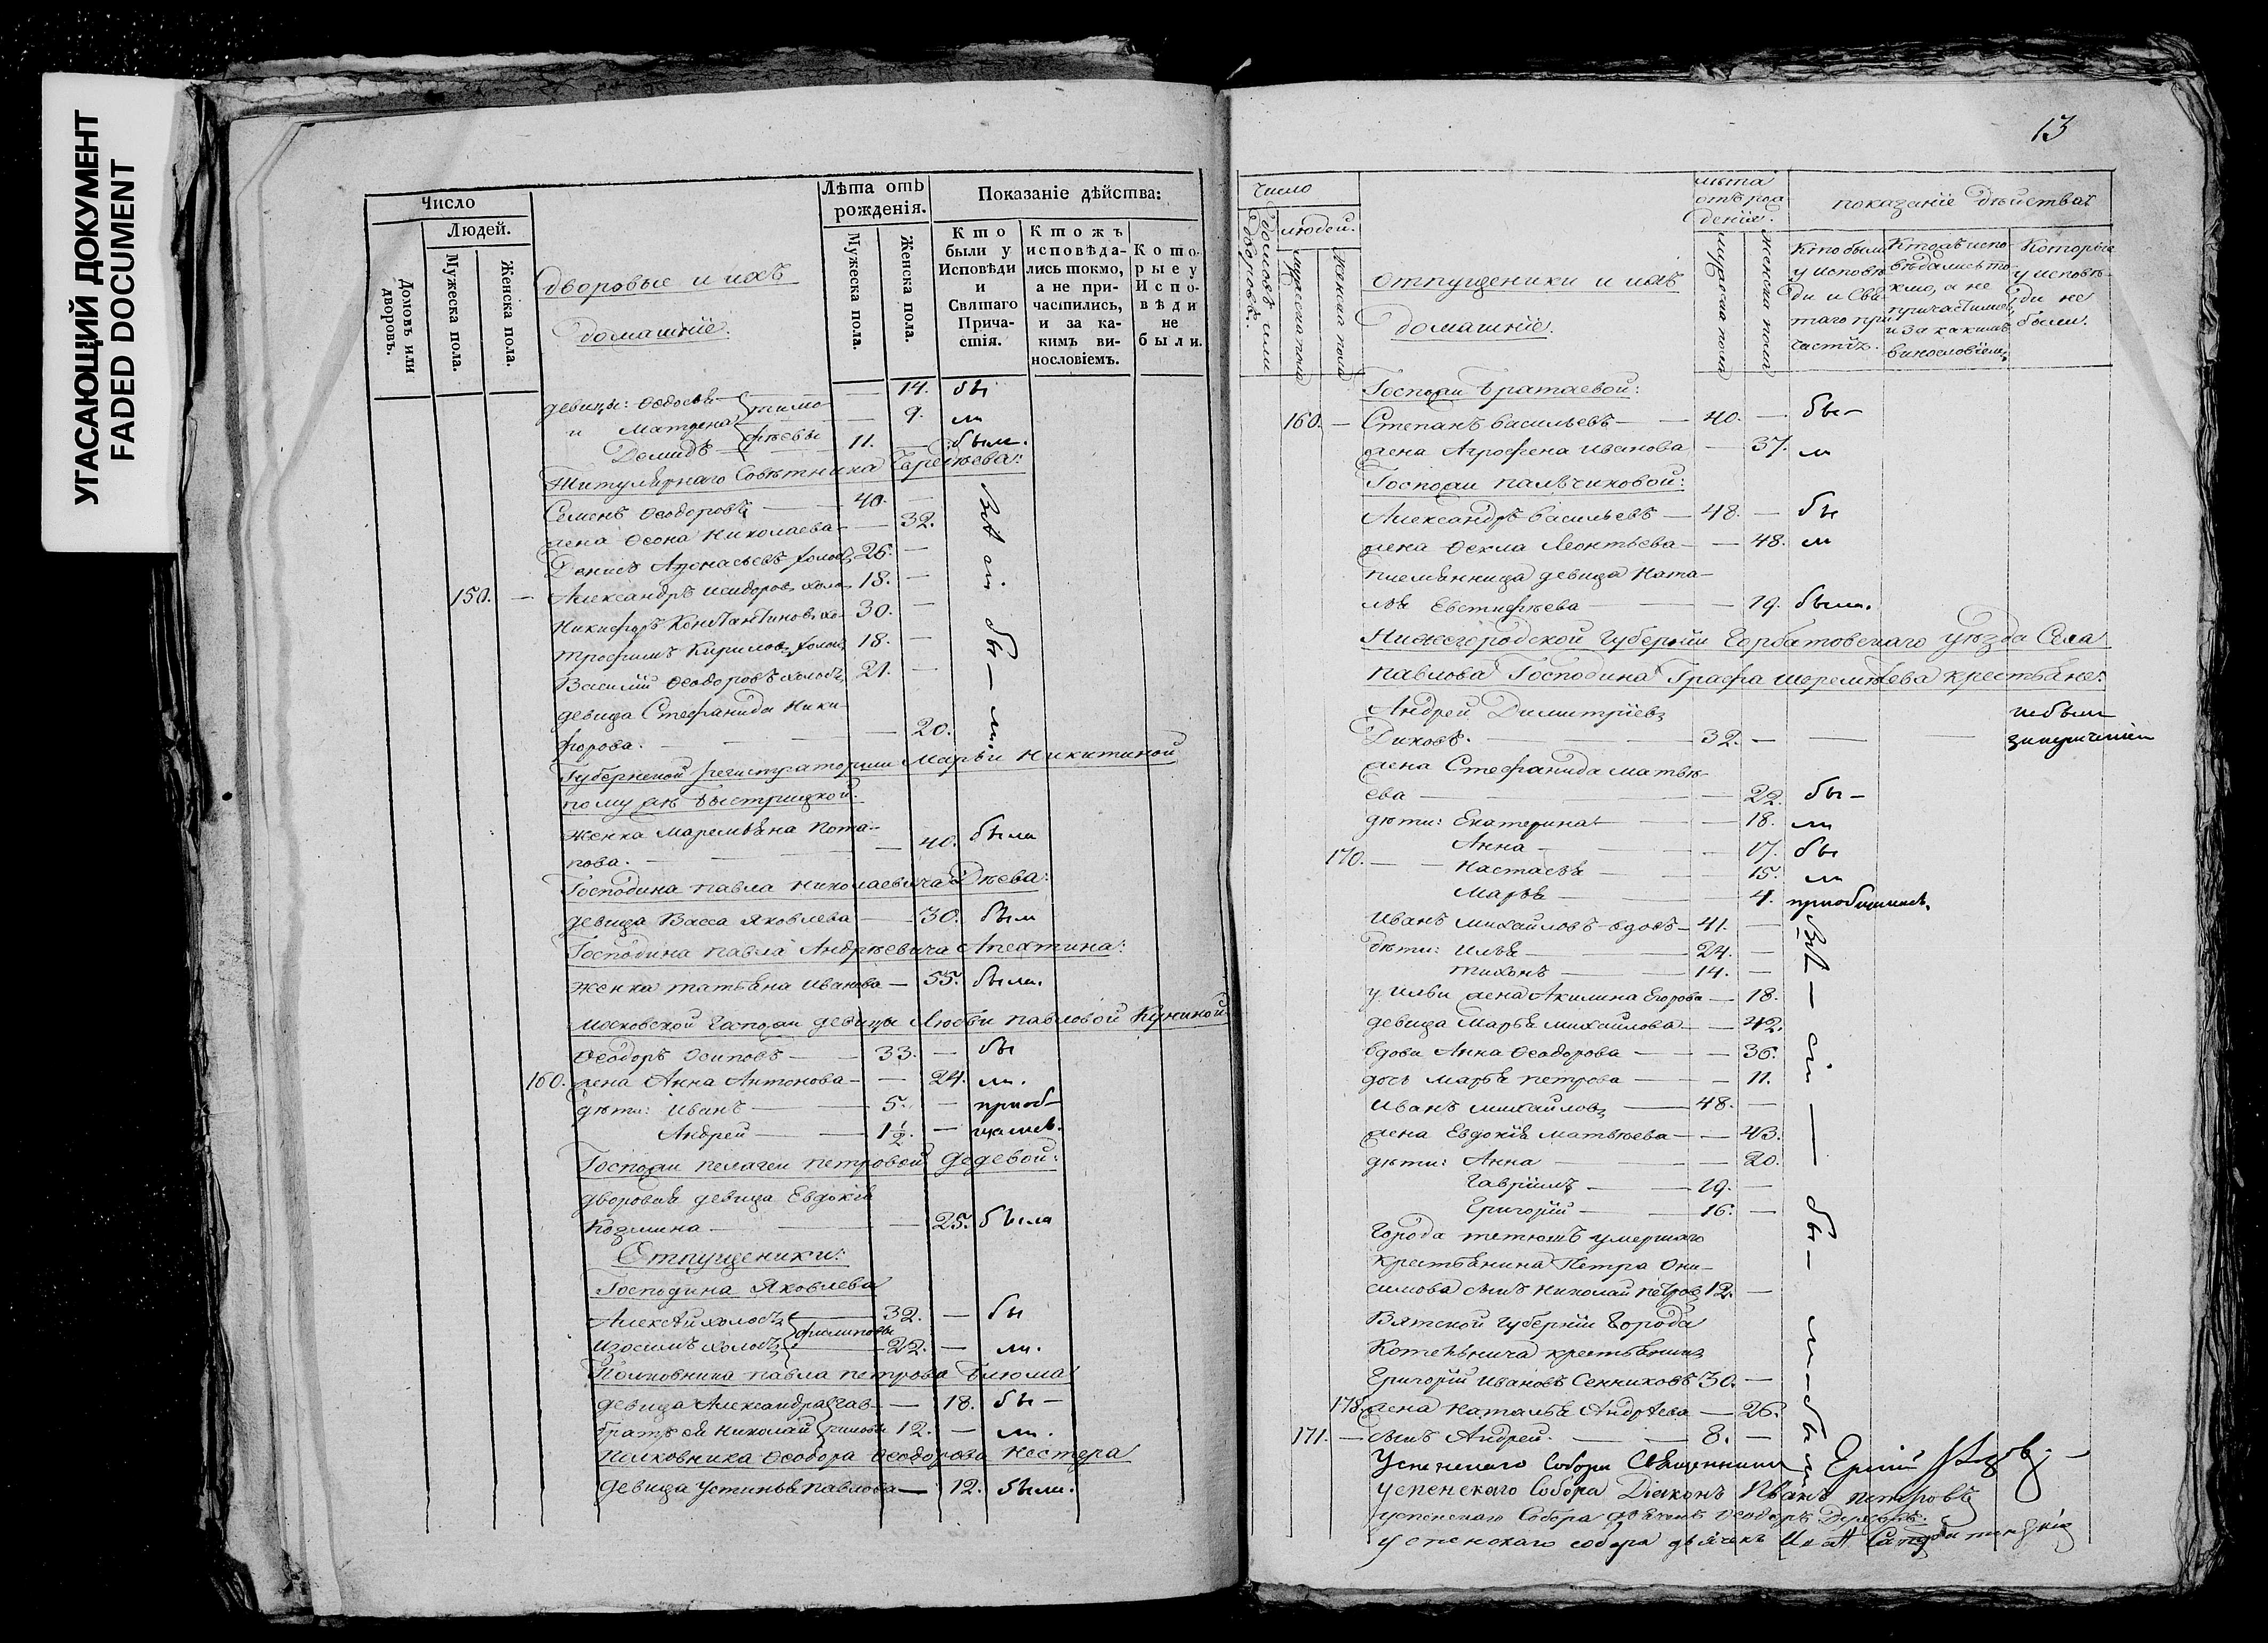 УГАСАЮЩИЙ ДОКУМЕНТ
FADED DOCUMENT
Число
Людей.
Домовъ или дворовъ.
Мужеска пола.
Женска пола.
дворовые и ихъ
домашніе.
Лѣта отъ рожденія.
Мужеска пола.
Женска пола.
Показаніе дѣйства:
Кто были у Исповѣди и Святаго Причастія.
Ктожъ исповѣдались токмо, а не причастились, и за какимъ винословіемъ.
Которые у Исповѣди не были.
девицы: Ѳедосья — 14. бы
и Матрена тимо — 9. ли
Демидъ ѳѣевы 11. — были.
Титулярнаго Совѣтника
Семенъ Ѳеодоровъ — 40. — всѣ
жена Николаева — 32.
Денисъ Аѳонасьевъ холостъ 26. — сіи
150. — Александръ Исидоровъ холо 18. —
Никифоръ Константиновъ хо 30. — бы
Трофимъ Кириловъ холос 18. —
Василій Ѳеодоровъ холостъ 21. —
девица Стефанида Ники-
форова. — 20. ли.
Губернской регистраторши Марьи Никитиной
по мужѣ Быстрицкой.
Женка Маремьяна Пота-
пова. — 40. была
Господина Павла Николаевича Дѣева:
девица Васса Яковлева — 30. был
Господина Павла Андрѣевича Апехтина:
женка Татьяна Иванова — 55. были.
Московской Госпожи девицы Любви Павловой
Ѳеодоръ Осиповъ — 33. — бы
160. жена Анна Антонова — 24. ли.
дѣти: Иванъ — 5. — приоб-
Андрей — 1½. — щались.
Госпожи Пелагеи Петровой Дедевой:
дворовая девица Евдокія
Козмина — 25. была
Отпущеники:
Господина Яковлева
Алексѣй холостъ — 32. — бы
Изосимъ холостъ филиповы — 22. — ли.
Полковника Павла Петрова Блюма
девица Александра Гав- — 18. бы —
братъ ей Николай риловы 12. — ли.
Полковника Ѳеодора Ѳеодорова Нестера
девица Устинья Павлова — 12. были.
13
Число
домовъ или дворовъ.
людей.
мужеска пола
женска пола
отпущеники и ихъ
домашніе.
лѣта отъ рождения.
мужеска пола
женска пола
показаніе дѣйства:
Кто были у исповѣди и Святаго причастія.
Ктожъ исповѣдались токмо, а не причастились, и за какимъ винословіемъ.
Которые у исповѣди не были.
Госпожи Братаевой:
160. — Степанъ Васильевъ — 40. — бы —
жена Агрофена Иванова — 37. ли
Госпожи Пальчиковой:
Александръ Васильевъ — 48. — бы
жена Ѳекла Леонтьева — 48. ли
племянница девица Ната-
лья Евстифѣева — 19. были.
Нижегородской Губерніи Горбатовскаго уѣзда Села
Павлова Господина Графа Шереметева крестьяне:
Андрей Димитріевъ не были
Диковъ. — 32. — за
жена Стефанида Матвѣ-
ева — 22. бы —
дѣти: Екатерина — 18. ли
Анна — 17. бы
170. — Настасья — 15. ли
Марья — 4. приобщилась.
Иванъ Михайловъ вдовъ — 41. — всѣ
дѣти: Илья — 24. —
Тихонъ — 14. —
у Ильи жена Акилина Егорова — 18.
девица Марья Михайлова — 42. сіи
вдова Анна Ѳеодорова — 36.
дочь Марья Петрова — 11.
Иванъ Михайловъ — 48. —
жена Евдокія Матвѣева — 43.
дѣти: Анна — 20.
Гавріилъ — 19. — бы —
Григорій — 16. —
Города Тетюшъ умершаго
крестьянина Петра Они-
симова сынъ Николай Петровъ 12. —
Вятской Губерніи Города
Котельнича крестьянинъ ли
Григорій Ивановъ Сенниковъ 30. —
178. жена Наталья Андрѣева — 26.
171. — сынъ Андрей. — 8. — были
Успенскаго Собора Священникъ
Успенскаго Собора Діаконъ Иванъ Петровъ
Успенскаго Собора дьячекъ Ѳеодоръ
Успенскаго собора дьячекъ